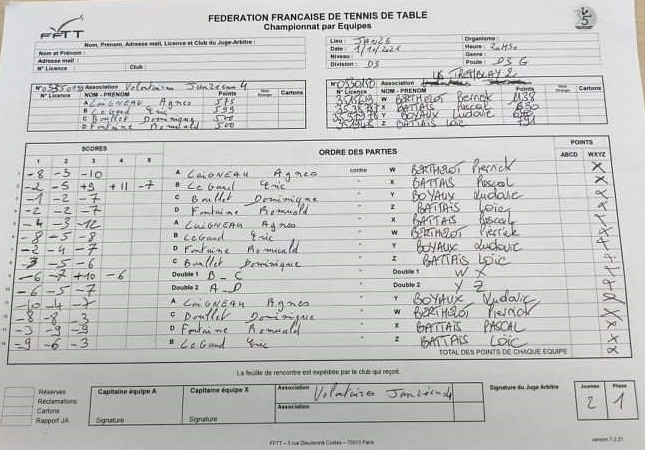 FFTT
FEDERATION FRANCAISE DE TENNIS DE TABLE
Championnat par Equipes
Nom, Prénom, Adresse mail, Licence et Club du Juge-Arbitre :
Nom et Prénom :
Adresse mail :
N° Licence : Club :
Lieu : JANZE
Date : 1/10/2021
Niveau :
Division : D3
Organisme :
Heure : 20H30
Genre :
Poule : D3 G
Association Volontaires Janzéenne 4
N° Licence NOM - PRENOM Points Cartons
A LAIGNEAU Agnes 575
B Le Gand Eric 599
C Boullet Dominique 500
D Fontaine Romuald 500
Association US TREMBLAY 2
N° Licence NOM - PRENOM Points Cartons
W BERTHELOT Pierrick
X BATTAIS Pascal
Y BOYAUX Ludovic
Z BATTAIS Loïc
SCORES ORDRE DES PARTIES POINTS
1 2 3 4 5 ABCD WXYZ
-8 -3 -10 A LAIGNEAU Agnes contre W BERTHELOT Pierrick X
-2 -5 +9 +11 -7 B Le Gand Eric X BATTAIS Pascal X
-1 -2 -7 C Boullet Dominique Y BOYAUX Ludovic X
-2 -2 -7 D Fontaine Romuald Z BATTAIS Loïc X
-4 -3 -12 A LAIGNEAU Agnes X BATTAIS Pascal X
-8 -5 -8 B Le Gand Eric W BERTHELOT Pierrick X
-2 -4 -7 D Fontaine Romuald Y BOYAUX Ludovic X
-3 -5 -6 C Boullet Dominique Z BATTAIS Loïc X
-6 -7 +10 -6 Double 1 B - C Double 1 W X X
-6 -5 -7 Double 2 A - D Double 2 Y Z X
-10 -4 -7 A LAIGNEAU Agnes Y BOYAUX Ludovic X
-8 -8 -3 C Boullet Dominique W BERTHELOT Pierrick X
-3 -9 -9 D Fontaine Romuald X BATTAIS PASCAL X
-9 -6 -3 B Le Gand Eric Z BATTAIS Loïc X
TOTAL DES POINTS DE CHAQUE EQUIPE
La feuille de rencontre est expédiée par le club qui reçoit.
Réserves
Réclamations
Cartons
Rapport JA
Capitaine équipe A
Signature
Capitaine équipe X
Signature
Association Volontaires Janzéenne 4
Association
Signature du Juge Arbitre
Journée Phase
2 1
FFTT - 3 rue Dieudonné Costes - 75013 Paris
version 7.2.21